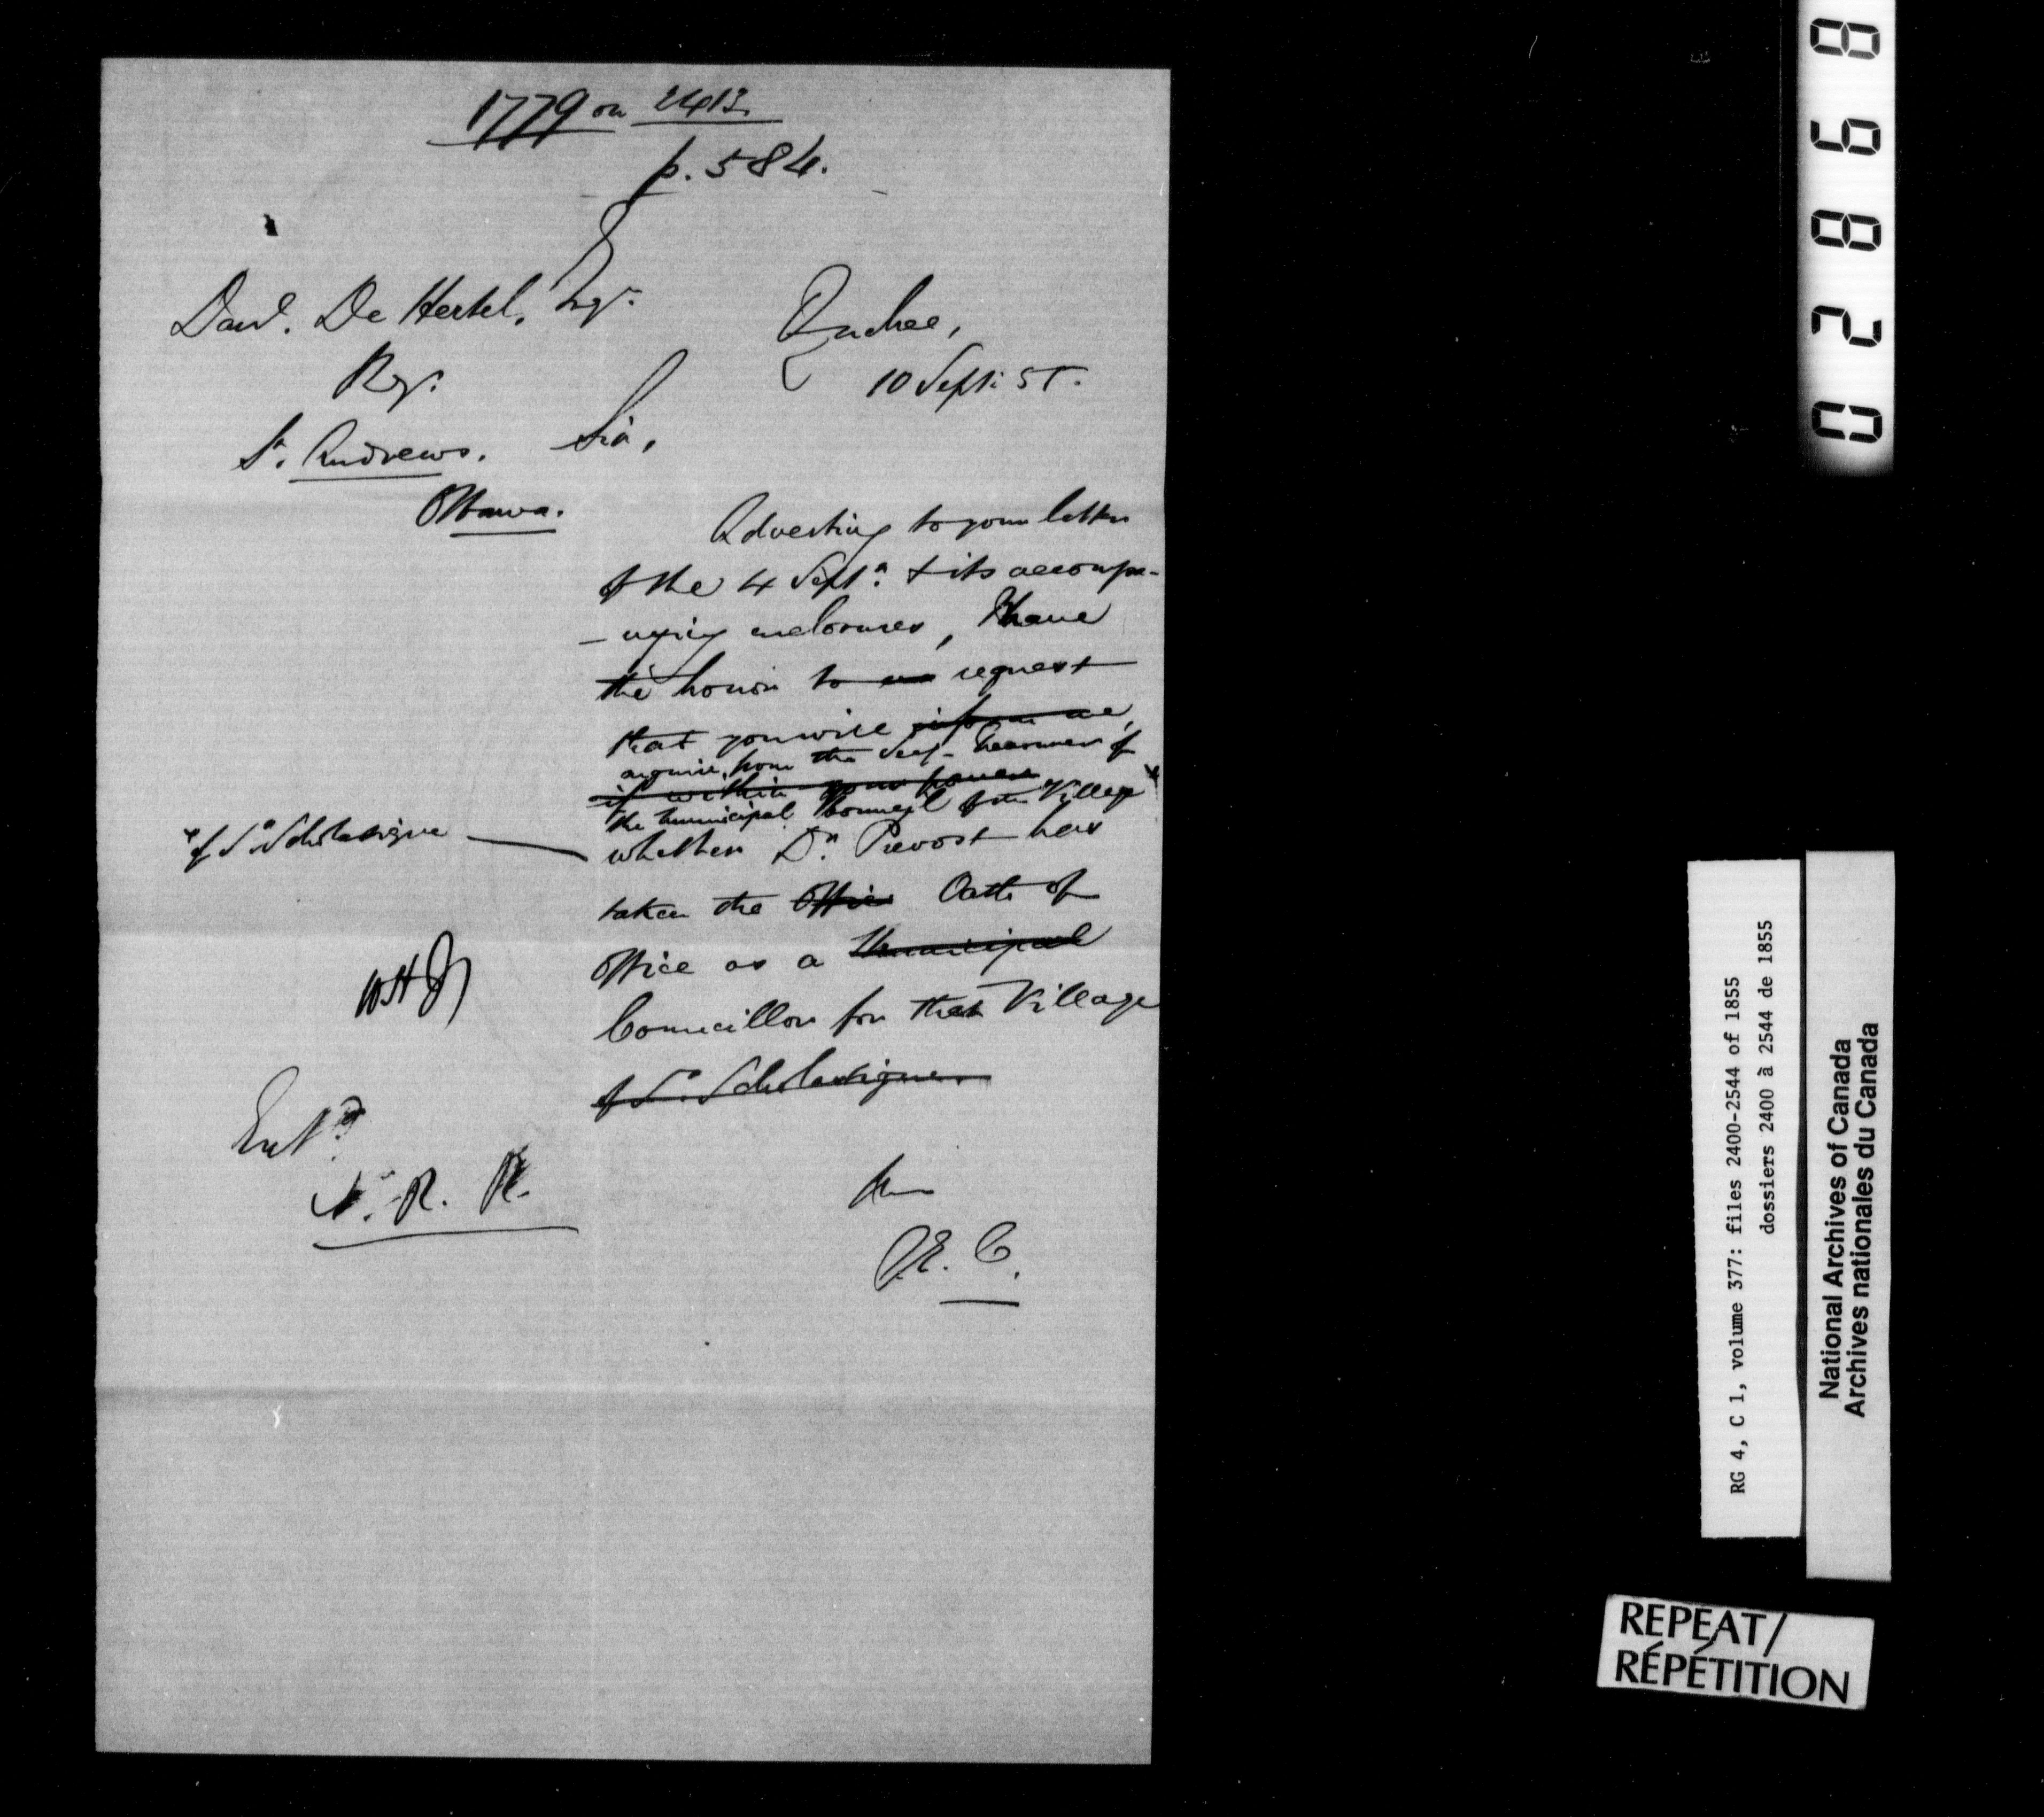 1779 on 2413.
p. 584.
Danl. De Hertel, Esqr.
Regr.
St. Andrews.
Ottawa.
Quebec,
10 Sept: 55.
Sir,
Adverting to your letter
of the 4 Septr. & its accompa-
-nying enclosures, I have
the honor to request
that you will inform me,
acquire, from the Secy- Treasurer of
if within your power
the municipal Council of the Village *
* of Ste Scholastique
whether Dr. Prevost has
taken the Office Oath of
Office as a Municipal
Councillor for that Village
of Ste Scholastique.
WHJ
Entd.
R. R.
P.E. C.
02868
RG 4, C 1, volume 377: files 2400-2544 of 1855
dossiers 2400 à 2544 de 1855
National Archives of Canada
Archives nationales du Canada
REPEAT/
RÉPÉTITION